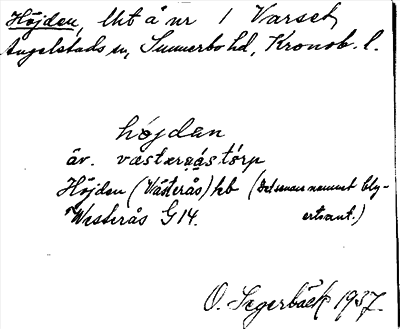 Höjden, lht å nr 1 Varset,
Angelstads sn, Sunnerbo hd, Kronob. l.
höjdan
äv. västæråstórp
Höjden (Västerås) hb (Det senare namnet bly-
Westerås G 14. ertsant.)
O. Segerbäck 1937.